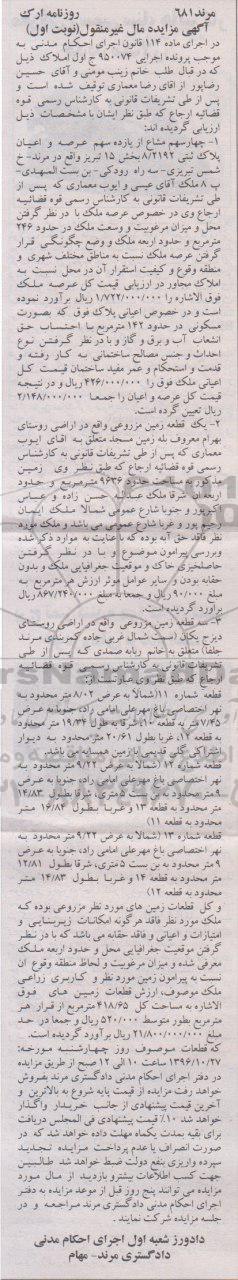 مرند۶۸۱ روزنامه ارک
آگهی مزایده مال غیرمنقول(نوبت اول)
در اجرای ماده ۱۱۴ قانون اجرای احکام مدنی به
موجب پرونده اجرایی ۹۵۰۰۷۴ ج اول املاک ذیل
که در قبال طلب خانم زینب مومنی و آقای حسین
رضاپور از اقای رضا معماری توقیف شده است و
پس از طی تشریفات قانونی به کارشناس رسمی قوه
قضائیه ارجاع که طبق نظر ایشان با مشخصات ذیل
ارزیابی گردیده اند:
۱- چهارسهم مشاع از یازده سهم عرصه و اعیان
پلاک ثبتی ۸/۲۱۹۲ بخش ۱۵ تبریز واقع در مرند- خ
شمس تبریزی- سه راه رودکی- بن بست المهدی-
پ ۸ ملک آقای عیسی و ایوب معماری که پس از
طی تشریفات قانونی به کارشناس رسمی قوه قضائیه
ارجاع وی در خصوص عرصه ملک با در نظر گرفتن
محل و میزان مرغوبیت و وسعت ملک در حدود ۲۴۶
مترمربع و حدود اربعه ملک و وضع چگونگی قرار
گرفتن عرصه ملک نسبت به مناطق مختلف شهری و
منطقه وقوع و کیفیت استقرار آن در محل نسبت به
املاک مجاور در ارزیابی قیمت کل عرصه ملک
فوق الاشاره را ۱/۷۲۲/۰۰۰/۰۰۰ ریال برآورد نموده
است و در خصوص اعیانی پلاک فوق که بصورت
مسکونی در حدود ۱۴۲ مترمربع با احتساب حق
انشعاب آب و برق و گاز و با در نظر گرفتن نوع
احداث و جنس مصالح ساختمانی به کار رفته و
قدمت و استحکام و عمر مفید ساختمان قیمت کل
اعیانی ملک فوق را ۴۲۶/۰۰۰/۰۰۰ ریال و در نتیجه
قیمت کل عرصه و اعیان را جمعا ۲/۱۴۸/۰۰۰/۰۰۰
ریال تعیین گرده است.
۲- یک قطعه زمین مزروعی واقع در اراضی روستای
بهرام معروف بله زمین مسجد متعلق به اقای ایوب
معماری که پس از طی تشریفات قانونی به کارشناس
رسمی قوه قضائیه ارجاع که طبق نظر وی زمین
مذکور به مساحت حدود ۹۶۳۶ مترمربع و حدود
اربعه آن شرقا ملک عدل حسن زاده و عباس
کریم پور و جنوبا شارع عمومی شمالا ملک ایمان
رحیم پور و غربا شارع عمومی می باشد و ملک مورد
نظر فاقد حق آبه بوده که با عنایت به موارد ذکر شده
وبررسی پیرامون موضوع و با در نظر گرفتن
حاصلخیزی خاک و موقعیت جغرافیایی ملک و بدون
حقابه بودن و سایر عوامل موثر ارزش هر مترمربع به
مبلغ ۹۰/۰۰۰ ریال و جمعا به مبلغ ۸۶۷/۲۴۰/۰۰۰ ریال
برآورد گردیده است.
۳- سه قطعه زمین مزروعی واقع در اراضی روستای
دیزج یکان (سمت شمال غربی جاده کمربندی مرند
جلفا) متعلق به خانم ربابه صمدی که پس از طی
تشریفات قانونی به کارشناس رسمی قوه قضائیه
ارجاع که طبق نظر وی عبارتست از:
قطعه شماره ۱۱(شمالا به عرض ۸/۰۲ متر محدود به
نهر اختصاصی باغ مهرعلی امامی راد، جنوبا به عرض
۷/۴۵ متر به قطعه ۱۰، شرقا به طول ۱۹/۳۴ متر محدود
به قطعه ۱۲، غربا بطول ۲۰/۶۱ متر محدود به دیوار
اشتراکی گلی قدیمی با زمین همسایه می باشد.
قطعه شماره ۱۲ (شمالا به عرض ۹/۲۲ متر محدود به
نهر اختصاصی باغ مهرعلی امامی راد، جنوبا به عرض
۹ متر محدود به بن بست ۵ متری، شرقا بطول ۱۴/۸۳
متر محدود به قطعه ۱۳ و غربا بطول ۱۶/۸۴ متر
محدود به قطعه ۱۱)
قطعه شماره ۱۳ (شمالا به عرض ۹/۲۲ متر محدود به
نهر اختصاصی باغ مهرعلی امامی راد، جنوبا به عرض
۹ متر محدود به بن بست ۵ متری، شرقا بطول ۱۲/۸۱
متر محدود به قطعه ۱۴ و غربا بطول ۱۴/۸۳ متر
محدود به قطعه ۱۲)
و کل قطعات زمین های مورد نظر مزروعی بوده که
ملک مورد نظر فاقد هرگونه امکانات زیربنایی و
امتیازات و اعیانی و فاقد حقابه می باشد که با در نظر
گرفتن موقعیت جغرافیایی محل و حدود اربعه ملک
معرفی شده و میزان مرغوبیت و لحاظ منطقه وقوع آن
نسبت به پیرامون زمین مورد نظر و کاربری زراعی
ملک موصوف، ارزش قطعات زمین های فوق
الاشاره به مساحت کل ۴۱۸/۶۵ مترمربع از قرار هر
مترمربع بطور متوسط ۵۲۰/۰۰۰ ریال و جمعا در حد
مبلغ ۲۱/۸۰۰/۰۰۰/۰۰۰ ریال برآورد گردیده است.
که قطعات موصوف روز چهارشنبه مورخه:
۱۳۹۶/۱۰/۲۷ ساعت ۱۰ الی ۱۲ صبح از طریق مزایده
در دفتر اجرای احکام مدنی دادگستری مرند بفروش
خواهد رفت مزایده از قیمت پایه شروع به بالاترین و
آخرین قیمت پیشنهادی از جانب خریدار واگذار
خواهد شد ۱۰٪ قیمت پیشنهادی فی المجلس دریافت
برای بقیه بمدت یکماه مهلت داده خواهد شد که در
صورت انصراف یا عدم پرداخت مزایده تجدید
سپرده واریزی بنفع دولت ضبط خواهد شد طالبین
جهت کسب اطلاعات بیشتر و بازدید از مال مورد
مزایده می توانند پنج روز قبل از موعد مزایده به دفتر
اجرای احکام مدنی دادگستری مرند مراجعه و در
جلسه مزایده شرکت نمایند.
دادورز شعبه اول اجرای احکام مدنی
دادگستری مرند- مهام